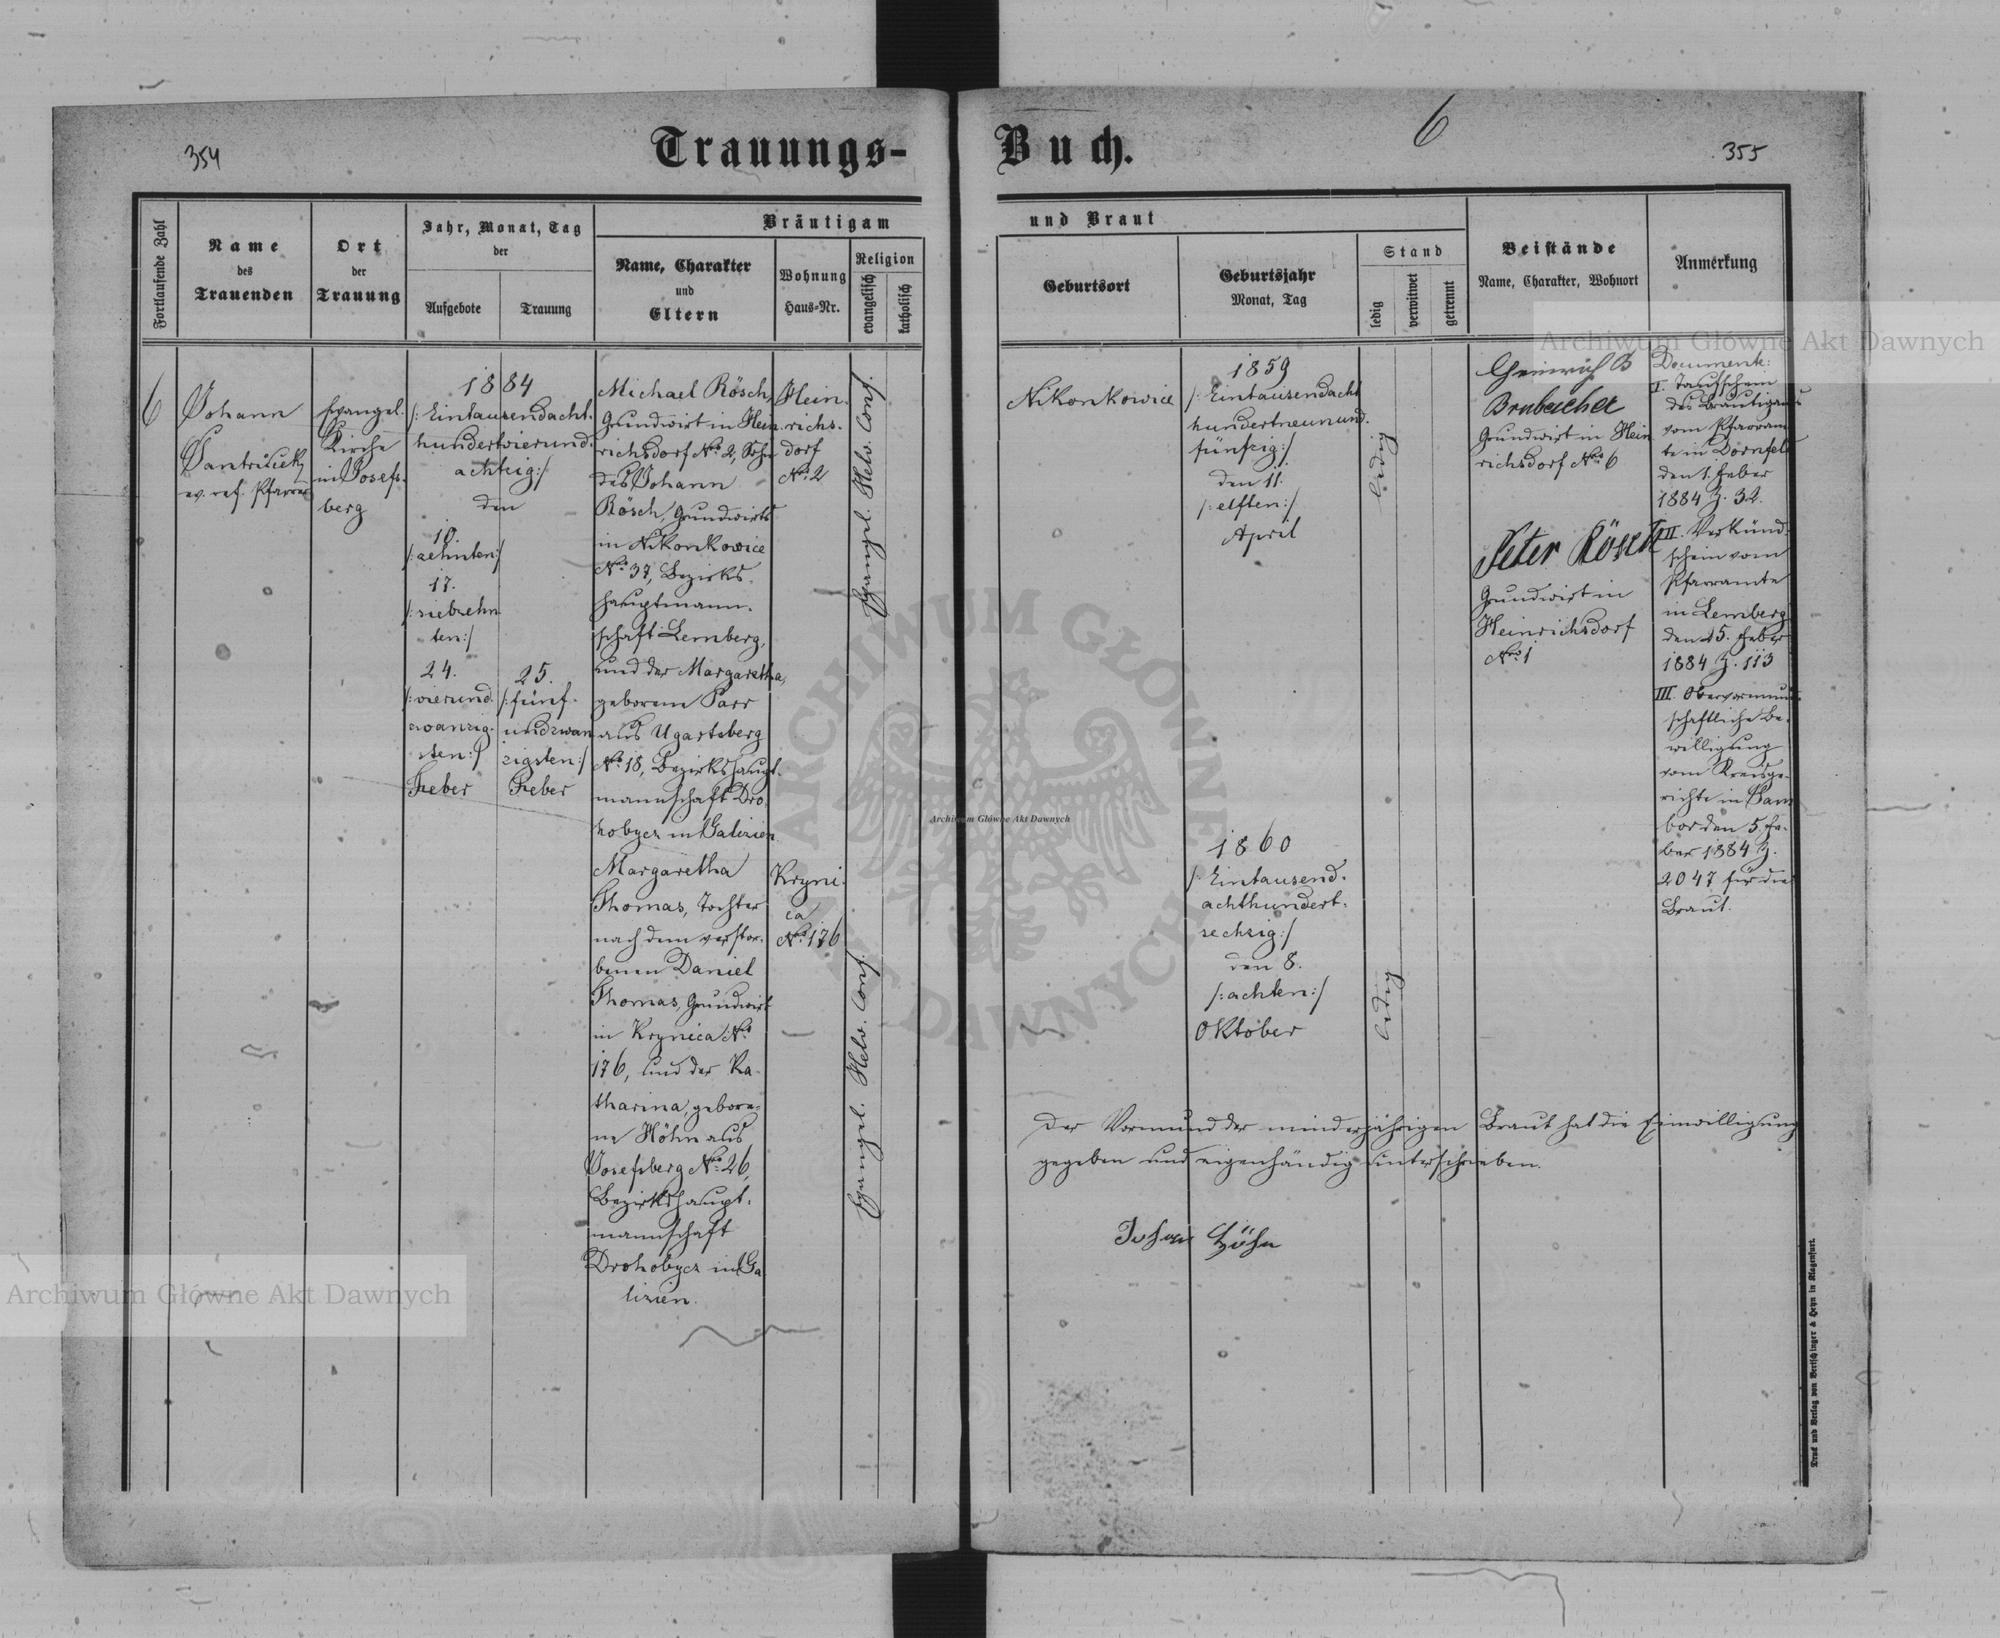 354
Trauungs-
Buch.
6
355
Fortlaufende Zahl
Name
des
Trauenden
Ort
der
Trauung
Jahr, Monat, Tag
der
Aufgebote
Trauung
Bräutigam
Name, Charakter
und
Eltern
Wohnung
Haus=Nr.
Religion
evangelisch
katholisch
6
Johann
ev. ref. Pfarrer
Evangel.
Kirche
in Josefs-
berg
1884
/: Eintausendacht-
hundertvierund-
achtzig :/
den
10.
/: zehnten :/
17.
/: siebzehn-
ten :/
24.
/: vierund-
zwanzig-
sten :/
Feber
25.
/: fünf-
undzwan
zigsten :/
Feber
Michael Rösch,
Grundwirt in Hein-
richsdorf No. 2, Sohn
des Johann
Rösch, Grundwirts
in Nikonkowice
No. 37, Bezirks-
hauptmann-
schaft Lemberg,
und der Margaretha,
geborenen Parr
aus Ugartsberg
No. 18, Bezirkshaupt-
mannschaft Dro-
hobycz in Galizien
Hein-
richs-
dorf
No. 2
Evangel. Helv. Conf.
Margaretha
Thomas, Tochter
nach dem verstor-
benen Daniel
Thomas, Grundwirt
in Krynica No.
176, und der Ka-
tharina, gebore-
ne Höhn aus
Josefsberg No. 26,
Bezirkshaupt-
mannschaft
Drohobycz in Ga
lizien.
Kryni-
ca
No. 176
Evangel. Helv. Conf.
und Braut
Geburtsort
Geburtsjahr
Monat, Tag
Stand
ledig
verwitwet
getrennt
Beistände
Name, Charakter, Wohnort
Anmerkung
Nikonkowice
1859
/: Eintausendacht
hundertneunund-
fünfzig :/
den 11.
/: elften :/
April
ledig
1860
/: Eintausend-
achthundert-
sechzig :/
den 8.
/: achten :/
Oktober
ledig
Heinrich B
Brubacher
Grundwirt in Hein
richsdorf No. 6
Peter Rösch
Grundwirt in
Heinrichsdorf
No. 1
Document:
I. Taufschein
des Bräutigams
vom Pfarram
te in Dornfeld
den 1. Feber
1884 Z. 32.
II. Verkünd-
schein vom
Pfarramte
in Lemberg
den 25. Feber
1884 Z. 113
III. Obervormund-
schaftliche Be-
willigung
vom Kreisge-
richte in Sam
bor den 5. Fe-
ber 1884 Z.
2047 für die
Braut.
Der Vormund der minderjährigen Braut hat die Einwilligung
gegeben und eigenhändig unterschrieben.
Johan Höhn
Druck und Verlag von Bertschinger & Heyn in Klagenfurt.
Archiwum Główne Akt Dawnych
Archiwum Główne Akt Dawnych
Archiwum Główne Akt Dawnych
ARCHIWUM GŁÓWNE AKT DAWNYCH